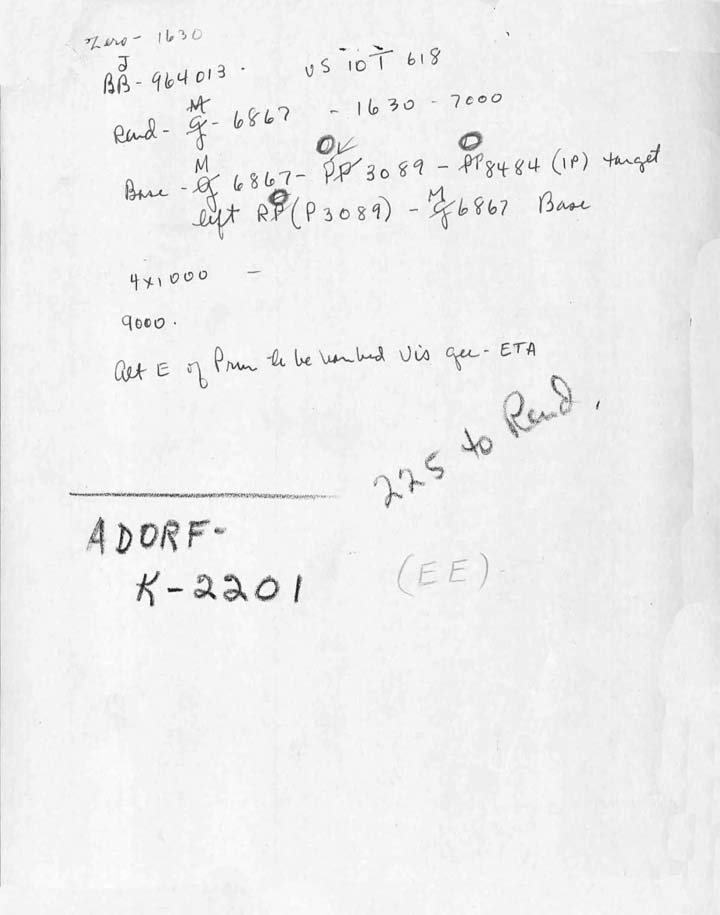 Zero - 1630
J
BB - 964013. US 10T 618
M
Rend - g - 6867 - 1630 - 7000
M O O
Base - g 6867 - PP 3089 - PP8484 (IP) target
left RP (P3089) - M g 6867 Base
4x1000 -
9000.
Alt E of Prum to be bombed Vis gee - ETA
225 to Rend.
ADORF-
K-2201
(EE)